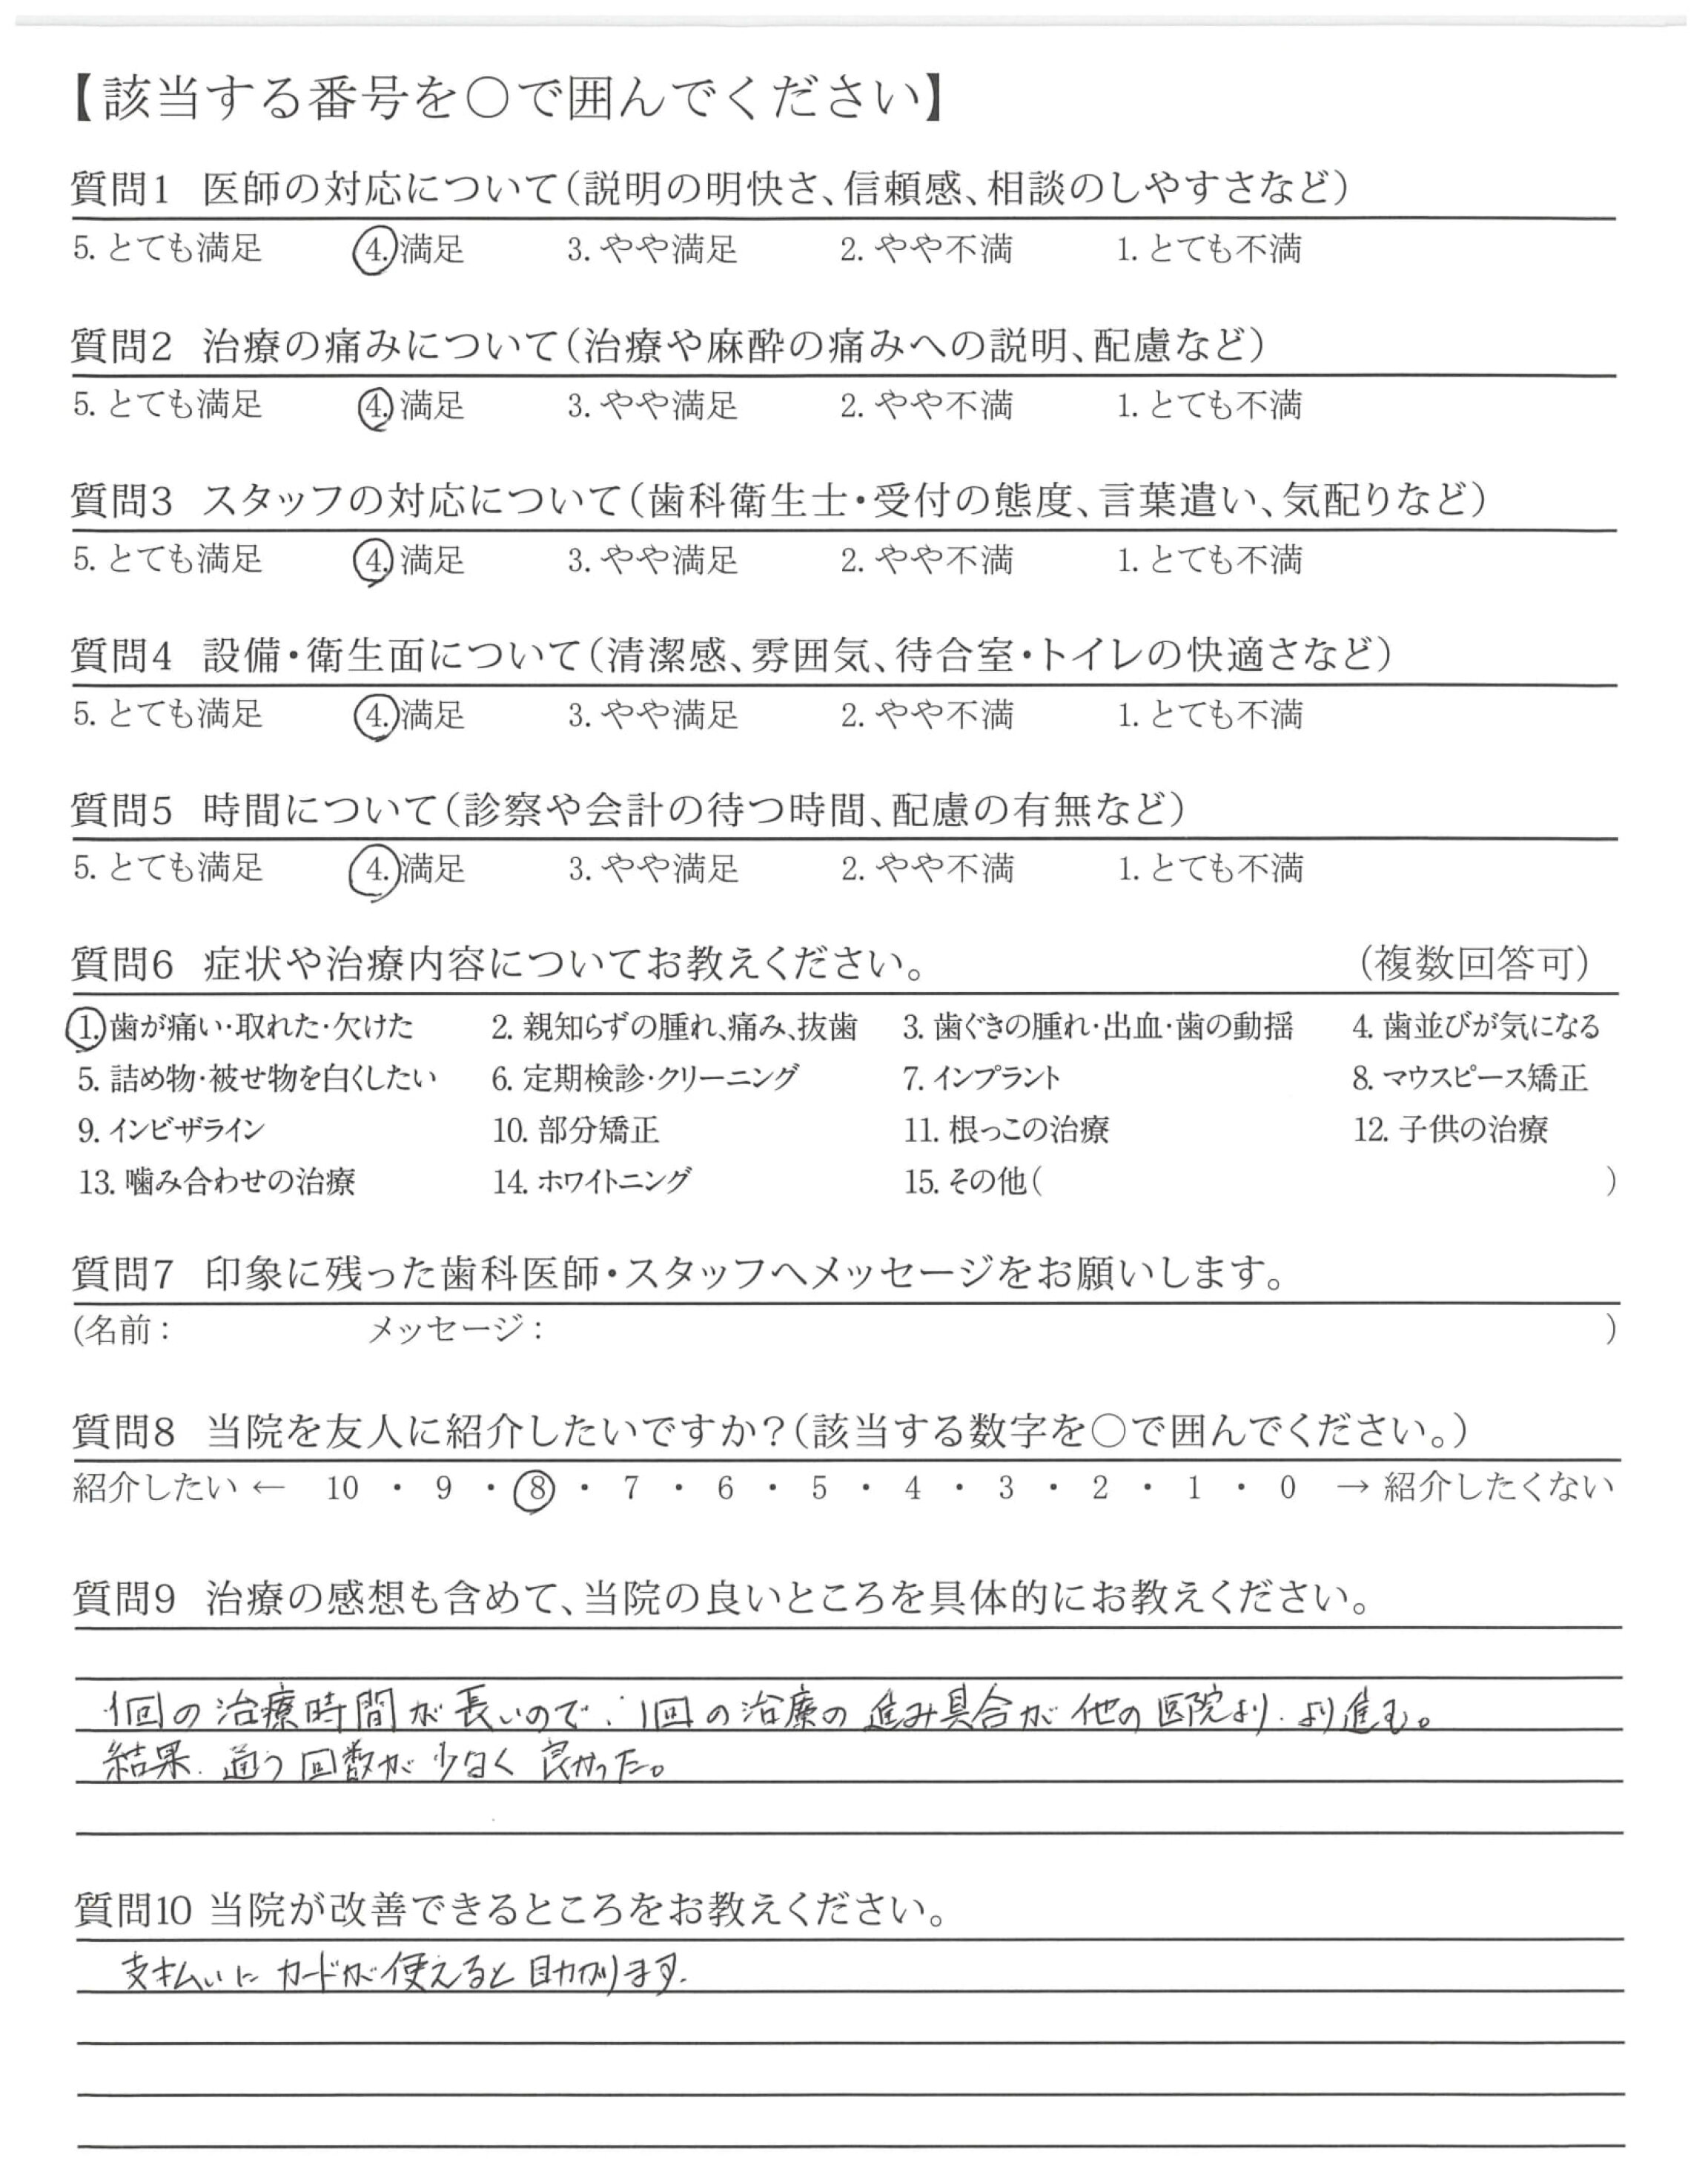 【該当する番号を○で囲んでください】
質問1 医師の対応について(説明の明快さ、信頼感、相談のしやすさなど)
5. とても満足 4. 満足 3. やや満足 2. やや不満 1. とても不満
質問2 治療の痛みについて(治療や麻酔の痛みへの説明、配慮など)
5. とても満足 4. 満足 3. やや満足 2. やや不満 1. とても不満
質問3 スタッフの対応について(歯科衛生士・受付の態度、言葉遣い、気配りなど)
5. とても満足 4. 満足 3. やや満足 2. やや不満 1. とても不満
質問4 設備・衛生面について(清潔感、雰囲気、待合室・トイレの快適さなど)
5. とても満足 4. 満足 3. やや満足 2. やや不満 1. とても不満
質問5 時間について(診察や会計の待つ時間、配慮の有無など)
5. とても満足 4. 満足 3. やや満足 2. やや不満 1. とても不満
質問6 症状や治療内容についてお教えください。 (複数回答可)
1. 歯が痛い・取れた・欠けた 2. 親知らずの腫れ、痛み、抜歯 3. 歯ぐきの腫れ・出血・歯の動揺 4. 歯並びが気になる
5. 詰め物・被せ物を白くしたい 6. 定期検診・クリーニング 7. インプラント 8. マウスピース矯正
9. インビザライン 10. 部分矯正 11. 根っこの治療 12. 子供の治療
13. 噛み合わせの治療 14. ホワイトニング 15. その他( )
質問7 印象に残った歯科医師・スタッフへメッセージをお願いします。
(名前: メッセージ: )
質問8 当院を友人に紹介したいですか?(該当する数字を○で囲んでください。)
紹介したい ← 10 ・ 9 ・ 8 ・ 7 ・ 6 ・ 5 ・ 4 ・ 3 ・ 2 ・ 1 ・ 0 → 紹介したくない
質問9 治療の感想も含めて、当院の良いところを具体的にお教えください。
1回の治療時間が長いので、1回の治療の進み具合が他の医院より、より進む。
結果、通う回数が少なく良かった。
質問10 当院が改善できるところをお教えください。
支払いにカードが使えると助かります。